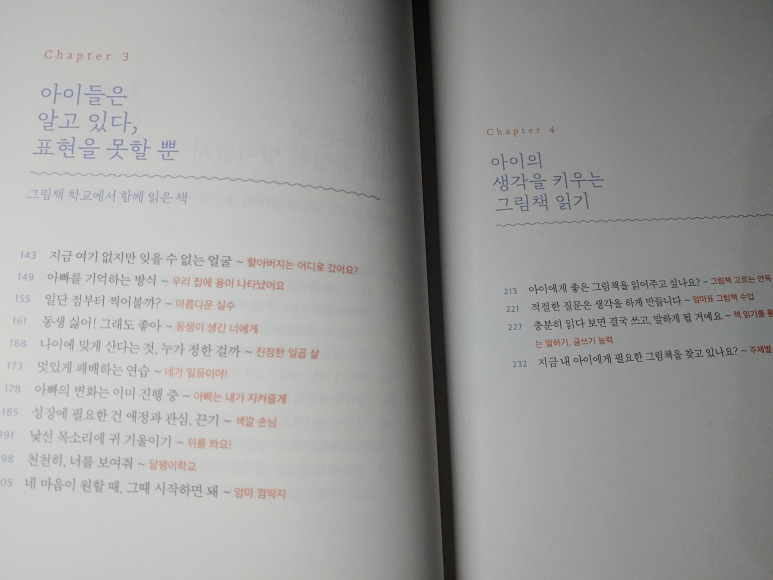 Chapter 3
아이들은
알고 있다,
표현을 못할 뿐
그림책 학교에서 함께 읽은 책
143 지금 여기 없지만 잊을 수 없는 얼굴 ~ 할아버지는 어디로 갔어요?
149 아빠를 기억하는 방식 ~ 우리 집에 용이 나타났어요
155 일단 점부터 찍어볼까? ~ 아름다운 실수
161 동생 싫어! 그래도 좋아 ~ 동생이 생긴 너에게
168 나이에 맞게 산다는 것, 누가 정한 걸까 ~ 진정한 일곱 살
173 멋있게 패배하는 연습 ~ 네가 일등이야!
178 아빠의 변화는 이미 진행 중 ~ 아빠는 내가 지켜줄게
185 성장에 필요한 건 애정과 관심, 끈기 ~ 색깔 손님
191 낯선 목소리에 귀 기울이기 ~ 위를 봐요!
98 천천히, 너를 보여줘 ~ 달팽이학교
05 네 마음이 원할 때, 그때 시작하면 돼 ~ 엄마 껌딱지
Chapter 4
아이의
생각을 키우는
그림책 읽기
213 아이에게 좋은 그림책을 읽어주고 싶나요? ~ 그림책 고르는 안목
221 적절한 질문은 생각을 하게 만듭니다 ~ 엄마표 그림책 수업
227 충분히 읽다 보면 결국 쓰고, 말하게 될 거예요 ~ 책 읽기를 통
는 말하기, 글쓰기 능력
232 지금 내 아이에게 필요한 그림책을 찾고 있나요? ~ 주제별